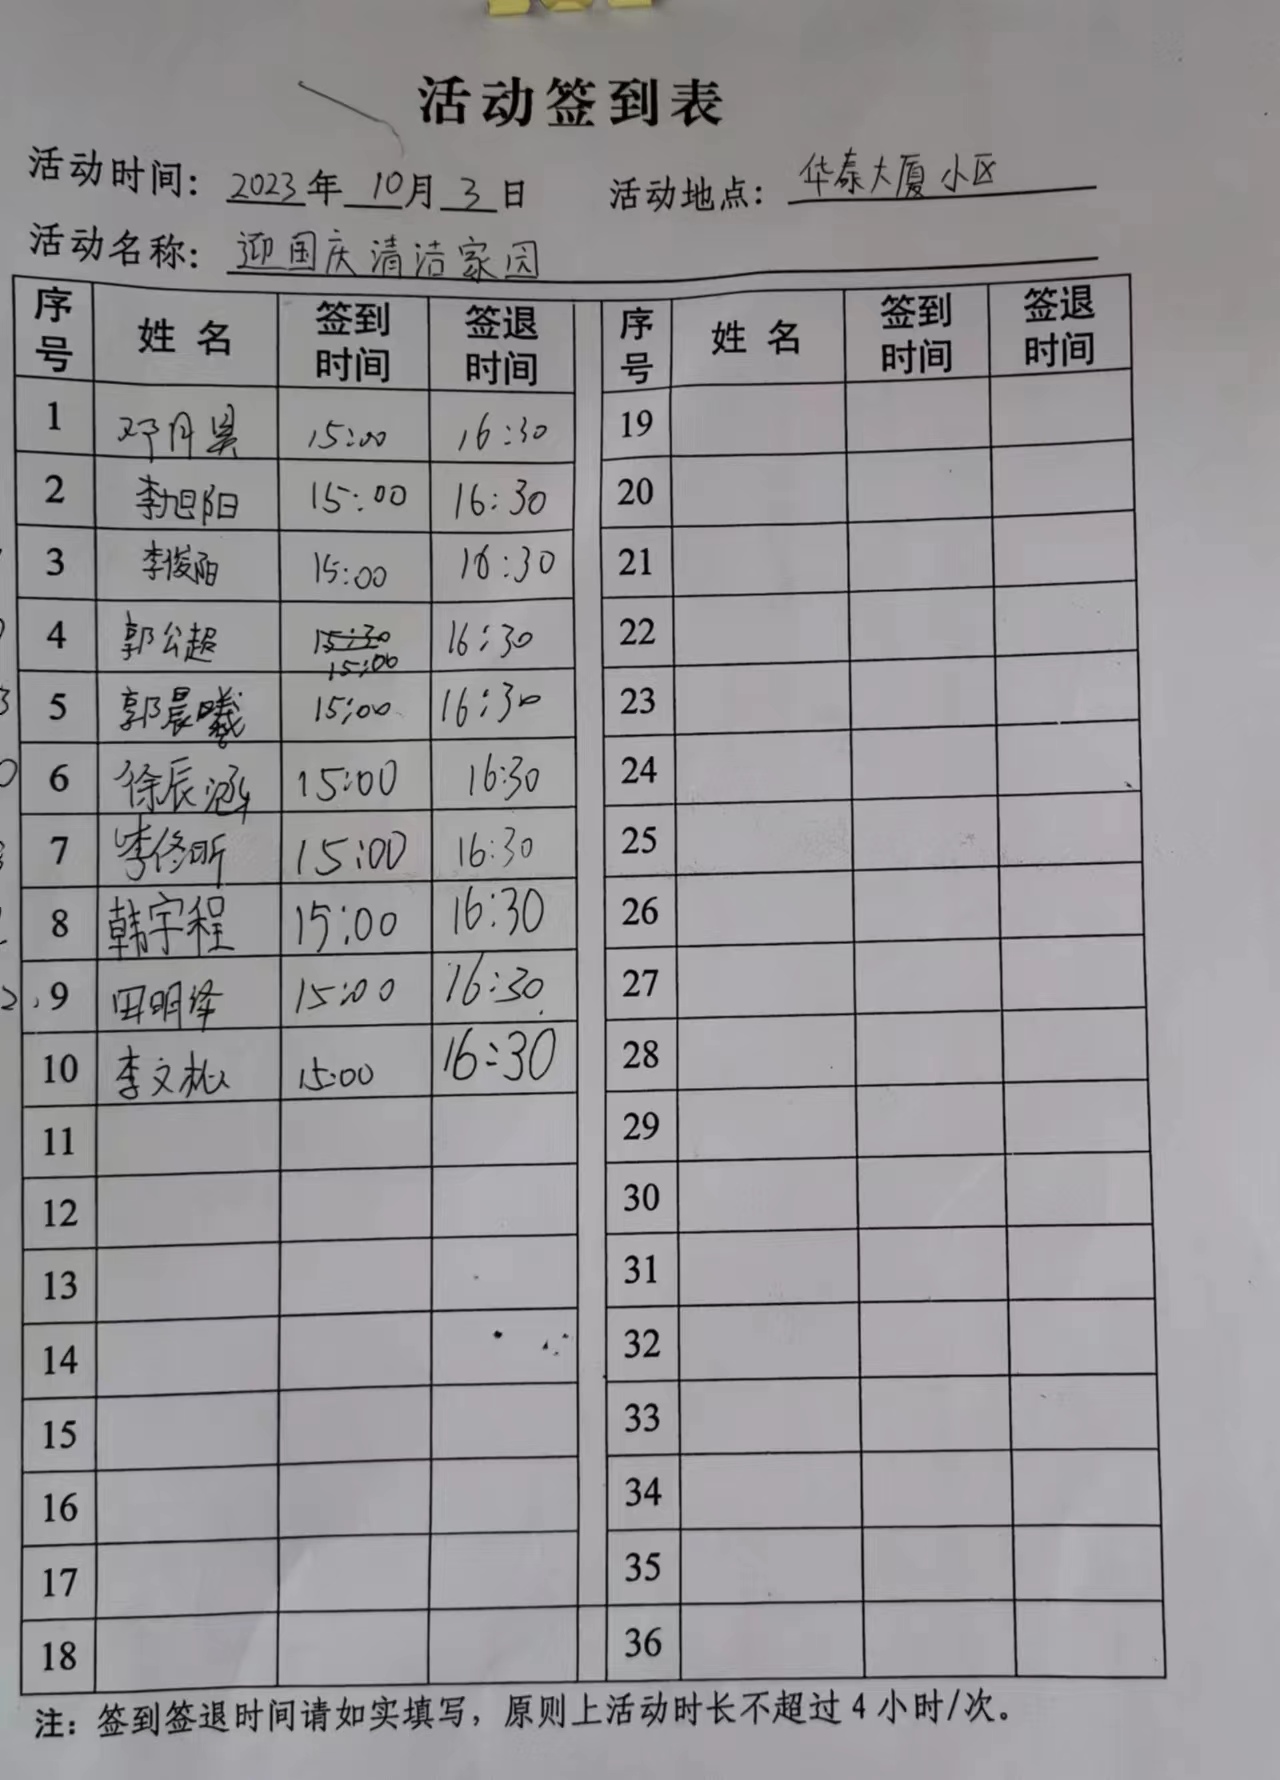 活动签到表
活动时间：2023年 10月 3日 活动地点：华泰大厦小区
活动名称：迎国庆清洁家园
序号 姓名 签到时间 签退时间 序号 姓名 签到时间 签退时间
1 邓月昊 15:00 16:30 19
2 李旭阳 15:00 16:30 20
3 李俊阳 15:00 16:30 21
4 郭公超 15:30 15:00 16:30 22
5 郭晨曦 15:00 16:30 23
6 徐辰涵 15:00 16:30 24
7 李修昕 15:00 16:30 25
8 韩宇程 15:00 16:30 26
9 田明泽 15:00 16:30 27
10 李文松 15:00 16:30 28
11 29
12 30
13 31
14 32
15 33
16 34
17 35
18 36
注：签到签退时间请如实填写，原则上活动时长不超过4小时/次。